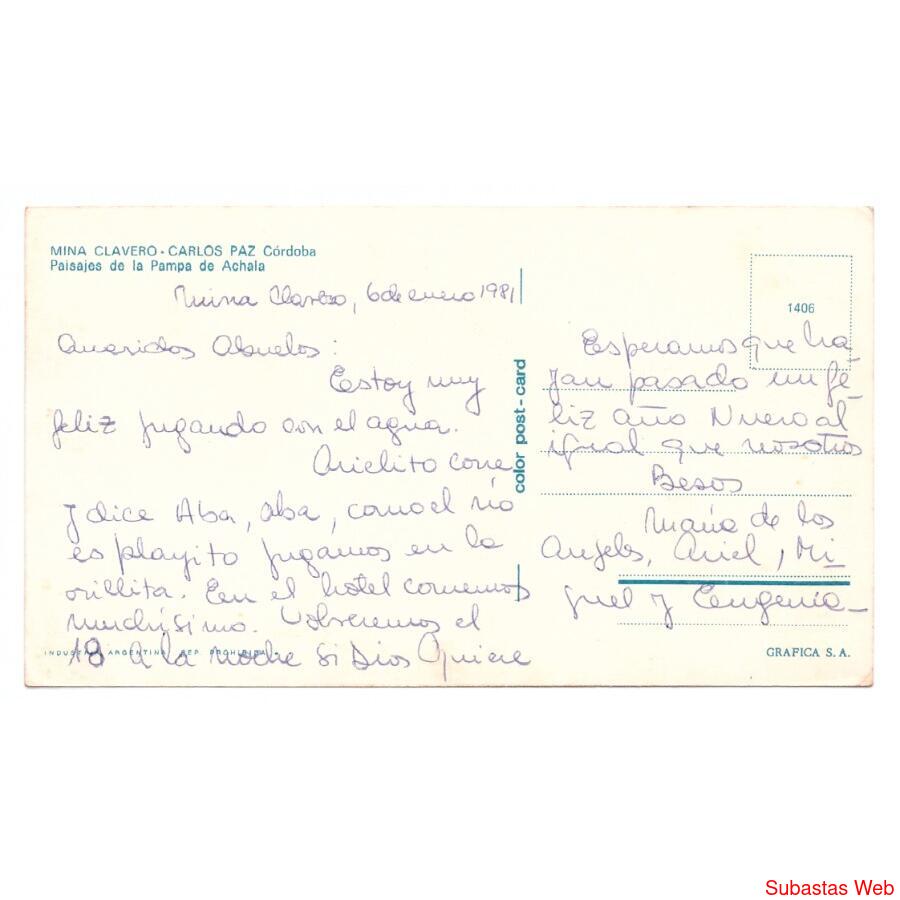 MINA CLAVERO - CARLOS PAZ Córdoba
Paisajes de la Pampa de Achala
Mina Clavero, 6 de enero 1981
Queridos Abuelos:
Estoy muy
feliz jugando con el agua.
Arielito corre
y dice Aba, aba, como el río
es playito jugamos en la
orillita. Een el hotel comemos
muchísimo. Volveremos el
18 a la noche si Dios Quiere
INDUSTRIA ARGENTINA REP. PROHIBIDA
color post-card
1406
Esperamos que ha-
yan pasado un fe-
liz año Nuevo al
igual que nosotros
Besos
María de los
Angeles, Ariel, Mi-
guel y Eugenia-
GRAFICA S.A.
Subastas Web